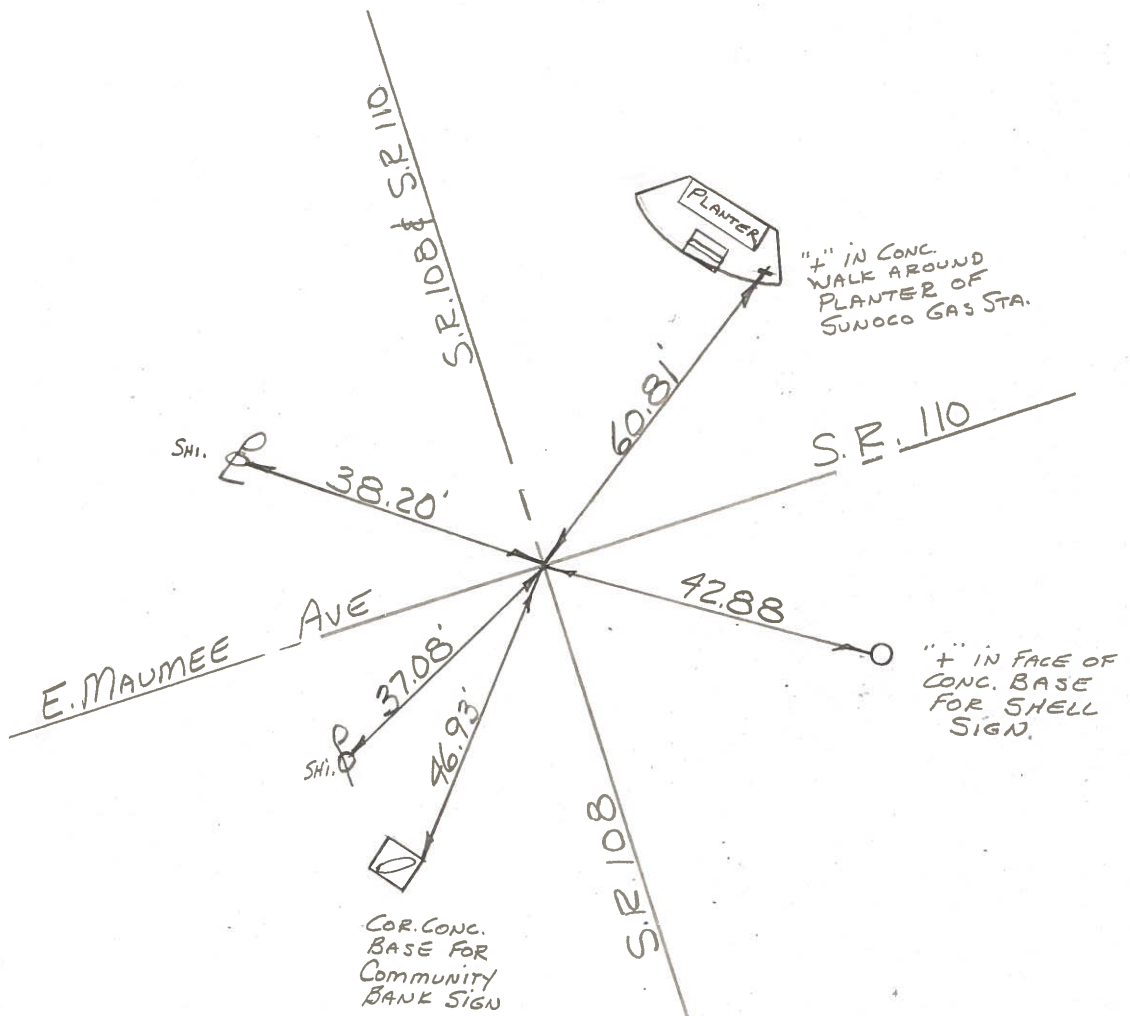 S.R. 108 & S.R 110
PLANTER
"+" IN CONC.
WALK AROUND
PLANTER OF
SUNOCO GAS STA.
60.81'
S.R. 110
SHI.
38.20'
42.88
"+" IN FACE OF
CONC. BASE
FOR SHELL
SIGN.
E. MAUMEE AVE
37.08'
46.93'
SHI.
S.R 108
COR. CONC.
BASE FOR
COMMUNITY
BANK SIGN